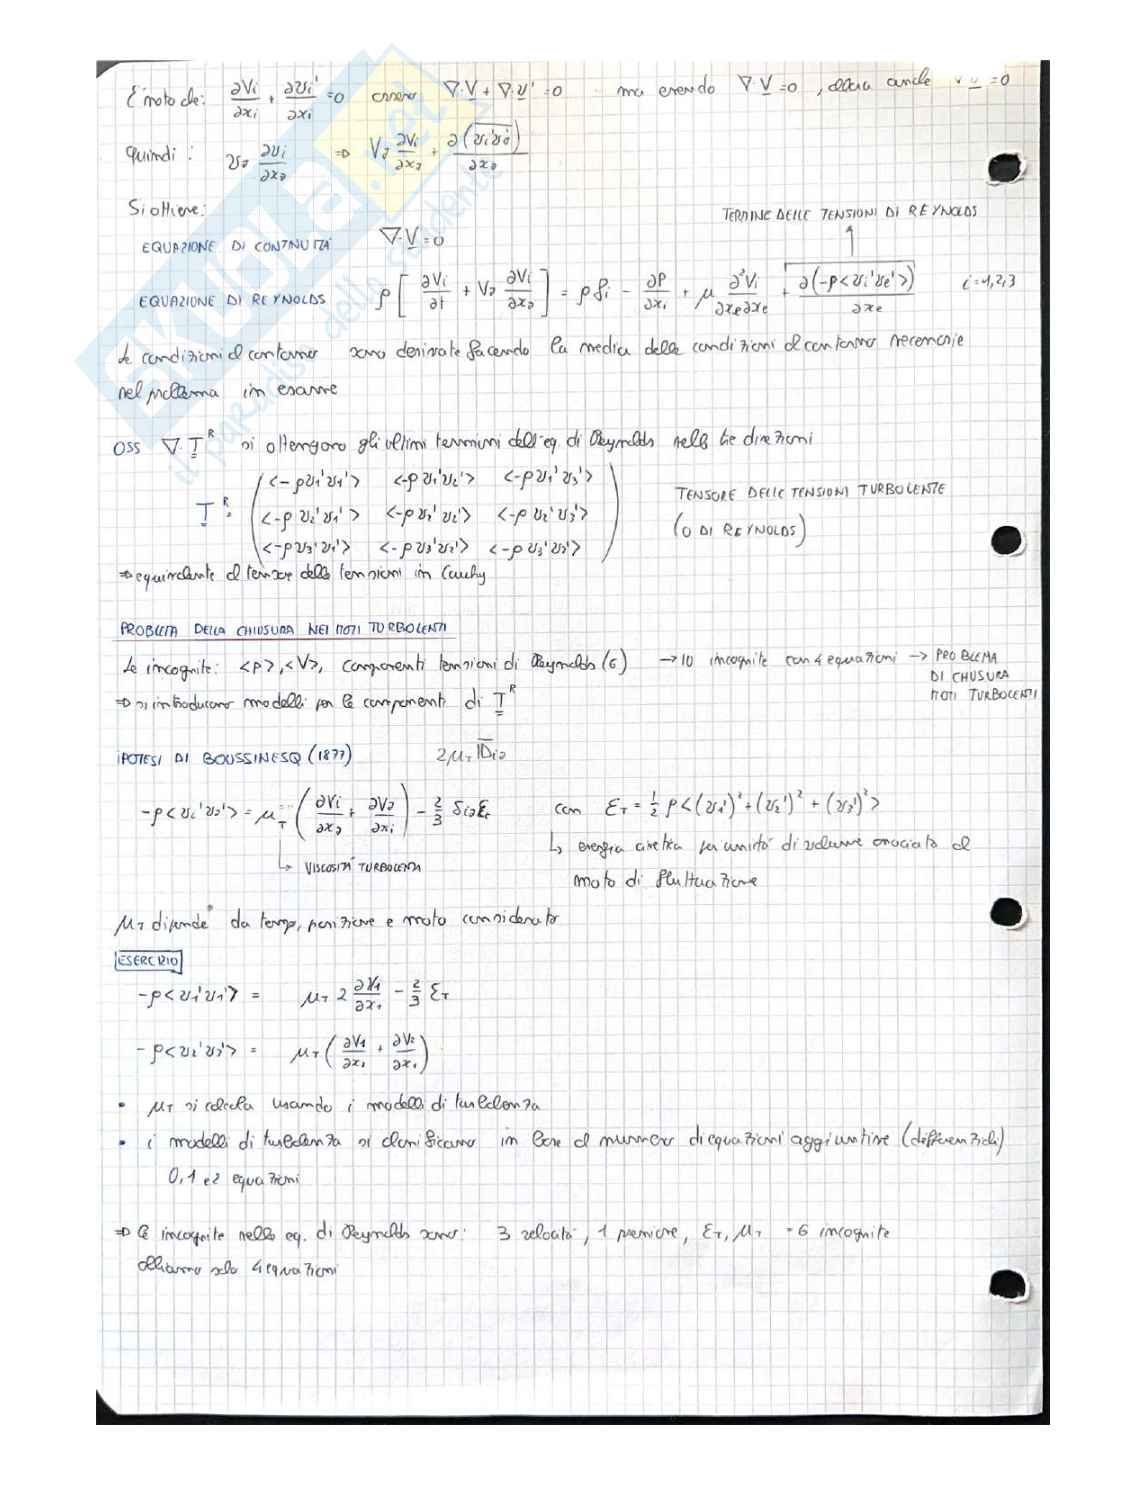 È noto che: ∂Vi/∂xi + ∂vi'/∂xi = 0 ovvero ∇·V + ∇·v' = 0 ma essendo ∇·V = 0, allora anche ∇·v' = 0
Quindi: vj ∂vi/∂xj ⇒ Vj ∂Vi/∂xj + ∂(vi'vj')/∂xj
Si ottiene:
TERMINE DELLE TENSIONI DI REYNOLDS
EQUAZIONE DI CONTINUITÀ ∇·V = 0
EQUAZIONE DI REYNOLDS ρ[∂Vi/∂t + Vj ∂Vi/∂xj] = ρfi - ∂P/∂xi + μ ∂²Vi/∂xe∂xe + ∂(-ρ<vi've'>)/∂xe i=1,2,3
Le condizioni al contorno sono derivate facendo la media delle condizioni al contorno necessarie
nel problema in esame
OSS ∇·T^R si ottengono gli ultimi termini dell'eq. di Reynolds nelle tre direzioni
<-ρv1'v1'> <-ρv1'v2'> <-ρv1'v3'>
T^R: <-ρv2'v1'> <-ρv2'v2'> <-ρv2'v3'>
<-ρv3'v1'> <-ρv3'v2'> <-ρv3'v3'>
TENSORE DELLE TENSIONI TURBOLENTE
(O DI REYNOLDS)
⇒ equivalente al tensore delle tensioni in Cauchy
PROBLEMA DELLA CHIUSURA NEI MOTI TURBOLENTI
Le incognite: <p>, <V>, componenti tensioni di Reynolds (6) → 10 incognite con 4 equazioni → PROBLEMA
DI CHIUSURA
MOTI TURBOLENTI
⇒ si introducono modelli per le componenti di T^R
IPOTESI DI BOUSSINESQ (1877) 2μT Dij
-ρ<vi'vj'> = μT (∂Vi/∂xj + ∂Vj/∂xi) - 2/3 δij εT con εT = 1/2 ρ<(v1')² + (v2')² + (v3')²>
↳ VISCOSITÀ TURBOLENTA
↳ energia cinetica per unità di volume associata al
moto di fluttuazione
μT dipende da tempo, posizione e moto considerato
ESERCIZIO
-ρ<v1'v1'> = μT 2 ∂V1/∂x1 - 2/3 εT
-ρ<v2'v3'> = μT (∂V1/∂x2 + ∂V2/∂x1)
• μT si calcola usando i modelli di turbolenza
• i modelli di turbolenza si classificano in base al numero di equazioni aggiuntive (differenziali)
0, 1 e 2 equazioni
⇒ le incognite nelle eq. di Reynolds sono: 3 velocità, 1 pressione, εT, μT = 6 incognite
abbiamo solo 4 equazioni
SKUOLA.net
il paradiso dello studente